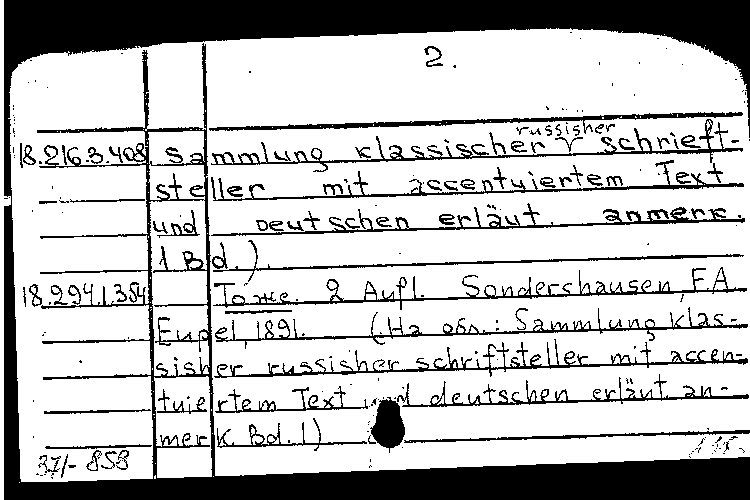 2.
russisher
18.216.3.408 Sammlung klassischer schrieft-
steller mit accentuiertem Text
und Deutschen erläut. anmerk.
1 Bd.).
18.294.1.384 То же. 2 Aufl. Sondershausen, F.A
Eupel, 1891. (На обл.: Sammlung klas-
sisher russisher schriftsteller mit accen-
tuiertem Text und deutschen erläut an-
merk. Bd. 1)
37/- 858